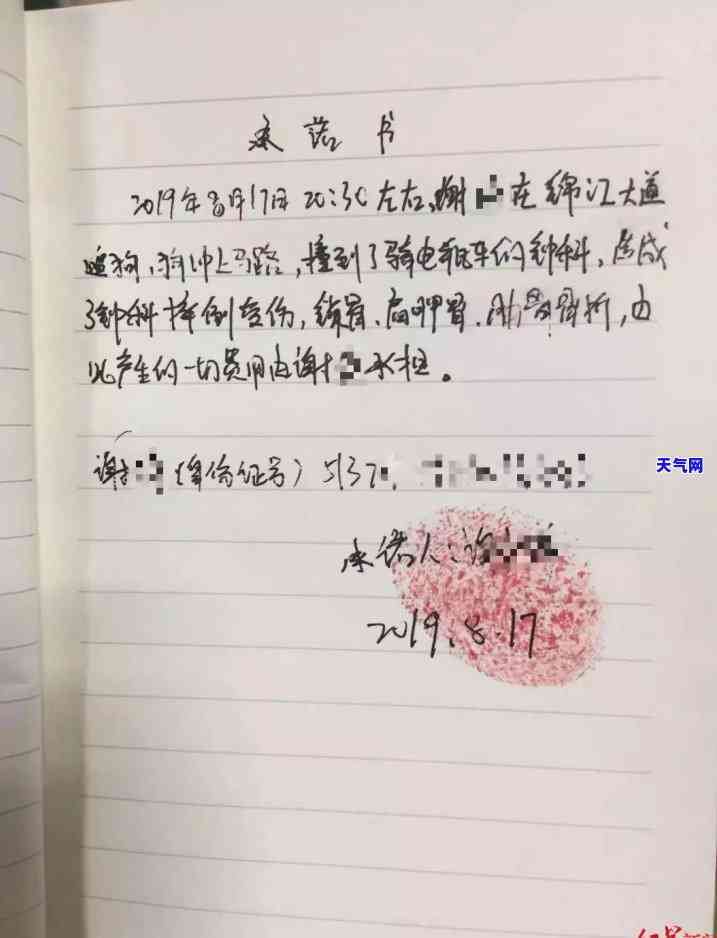 承诺书
2019年8月17日20:30左右,谢 在锦江大道
遛狗,狗冲上马路,撞到了骑电瓶车的钟科,造成
了钟科摔倒受伤,锁骨、肩胛骨、肋骨骨折,由
此产生的一切费用由谢 承担。
谢 (身份证号) 5137
天气网
承诺人:谢
2019.8.17